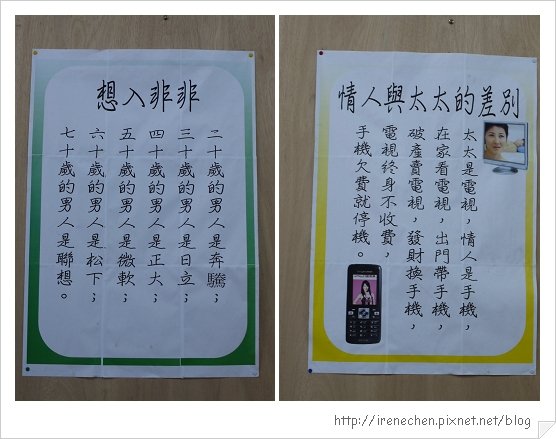 想入非非
二十歲的男人是奔騰；
三十歲的男人是日立；
四十歲的男人是正大；
五十歲的男人是微軟；
六十歲的男人是松下；
七十歲的男人是聯想。
情人與太太的差別
太太是電視，情人是手機，
在家看電視，出門帶手機，
破產賣電視，發財換手機，
電視終身不收費，
手機欠費就停機。
http://irenechen.pixnet.net/blog